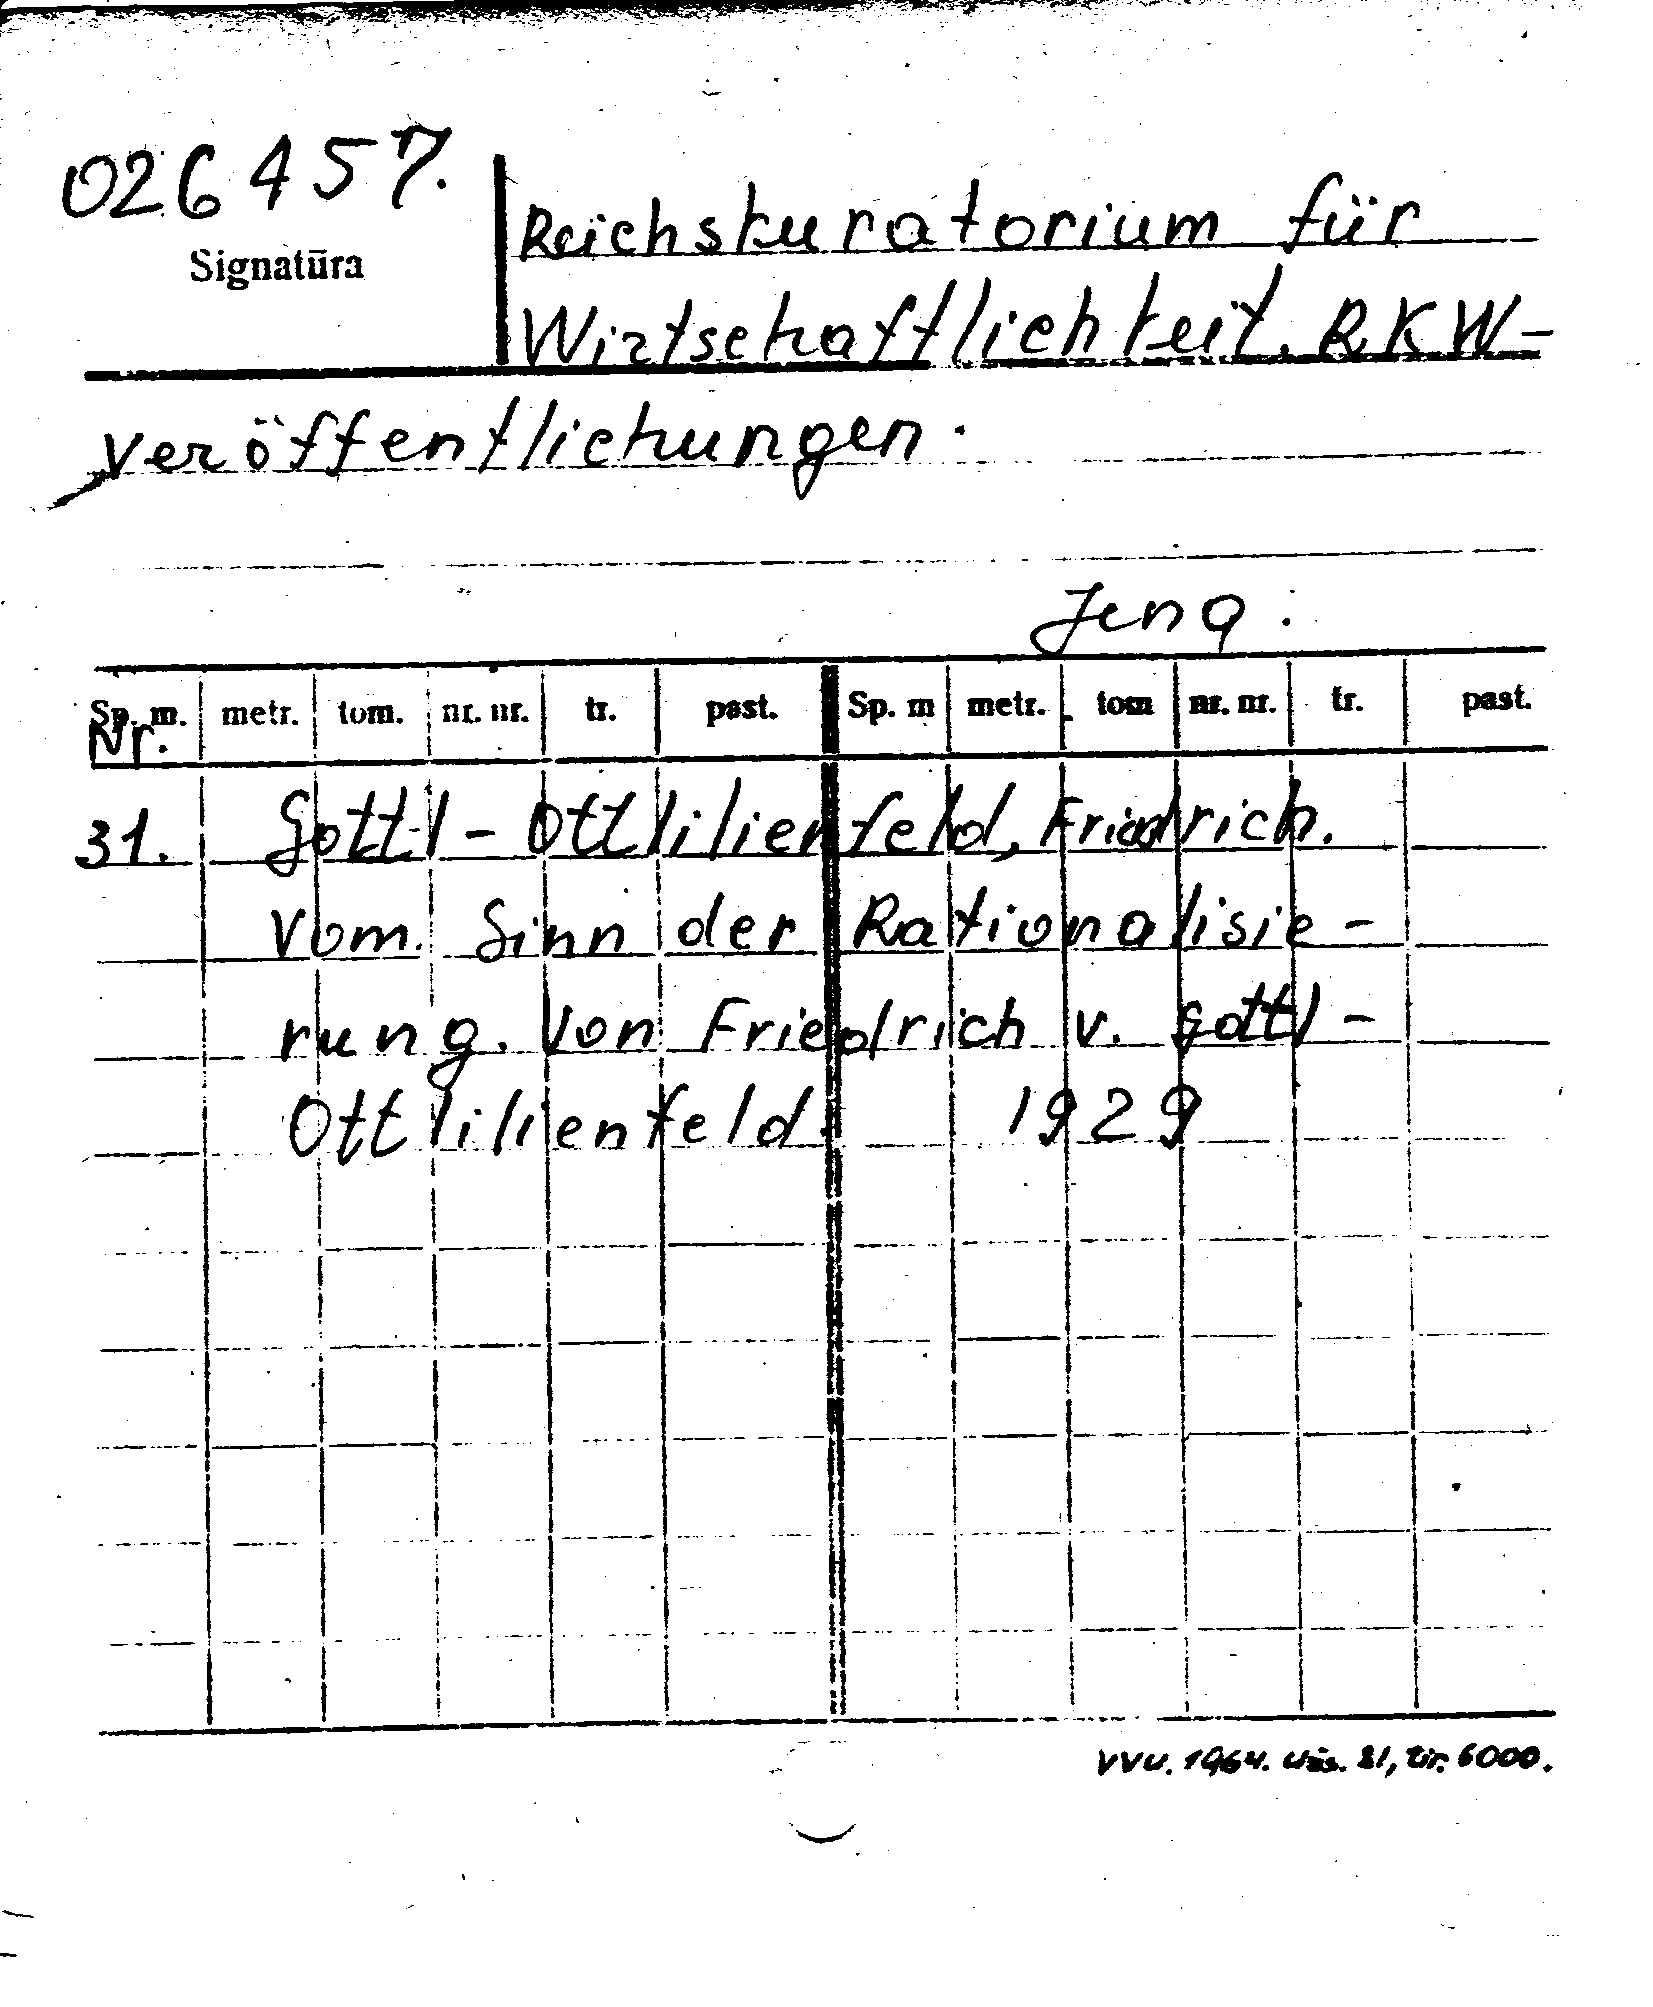 026457.
Signatūra
Reichskuratorium für
Wirtschaftlichkeit. RKW-
veröffentlichungen.
Jena.
Sp. m. metr. tom. nr. nr. tr. past. Sp. m metr. tom nr. nr. tr. past.
Nr.
31. Gottl-Ottlilienfeld, Friedrich.
Vom Sinn der Rationalisie-
rung. Von Friedrich v. Gottl-
Ottlilienfeld. 1929
VVU. 1964. Užs. 21, tir. 6000.